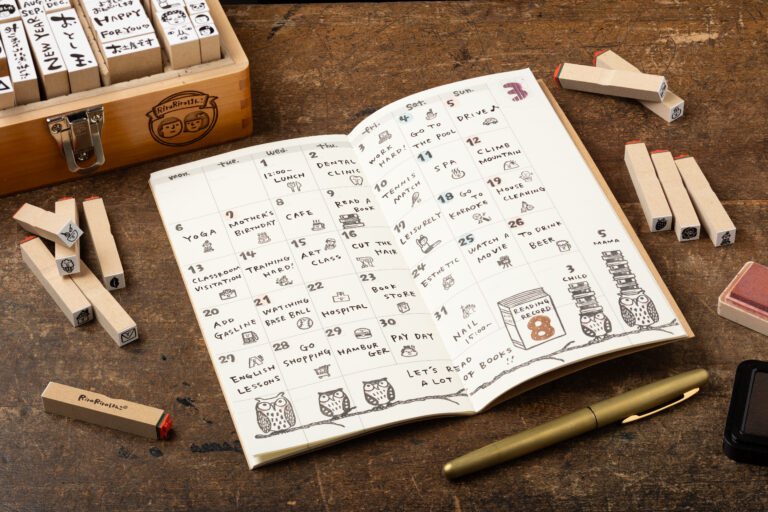 AUG.
SEP.
DEC.
NEW YEAR
HAPPY
FOR YOU
お土産です
RiraRira
3
mon.
tue.
wed.
thu.
fri.
sat.
sun.
1
12:00~
LUNCH
2
DENTAL
CLINIC
3
WORK
HARD!
4
GO TO
THE POOL
5
DRIVE♪
6
YOGA
7
MOTHER'S
BIRTHDAY
8
CAFE
9
READ A
BOOK
10
TENNIS
MATCH
11
SPA
12
CLIMB
MOUNTAIN
13
CLASSROOM
VISITATION
14
TRAINING
HARD!
15
ART
CLASS
16
CUT THE
HAIR
17
LEISURELY
18
GO
KARAOKE
19
HOUSE
CLEANING
20
ADD
GASOLINE
21
WATCHING
BASE BALL
22
HOSPITAL
23
BOOK
STORE
24
ESTHETIC
25
WATCH A
MOVIE
26
TO DRINK
BEER
27
ENGLISH
LESSONS
28
GO
SHOPPING
29
HAMBUR
GER
30
PAY DAY
31
NAIL
15:00~
READING
RECORD
8
3
CHILD
5
MAMA
LET'S READ
A LOT OF BOOKS!!